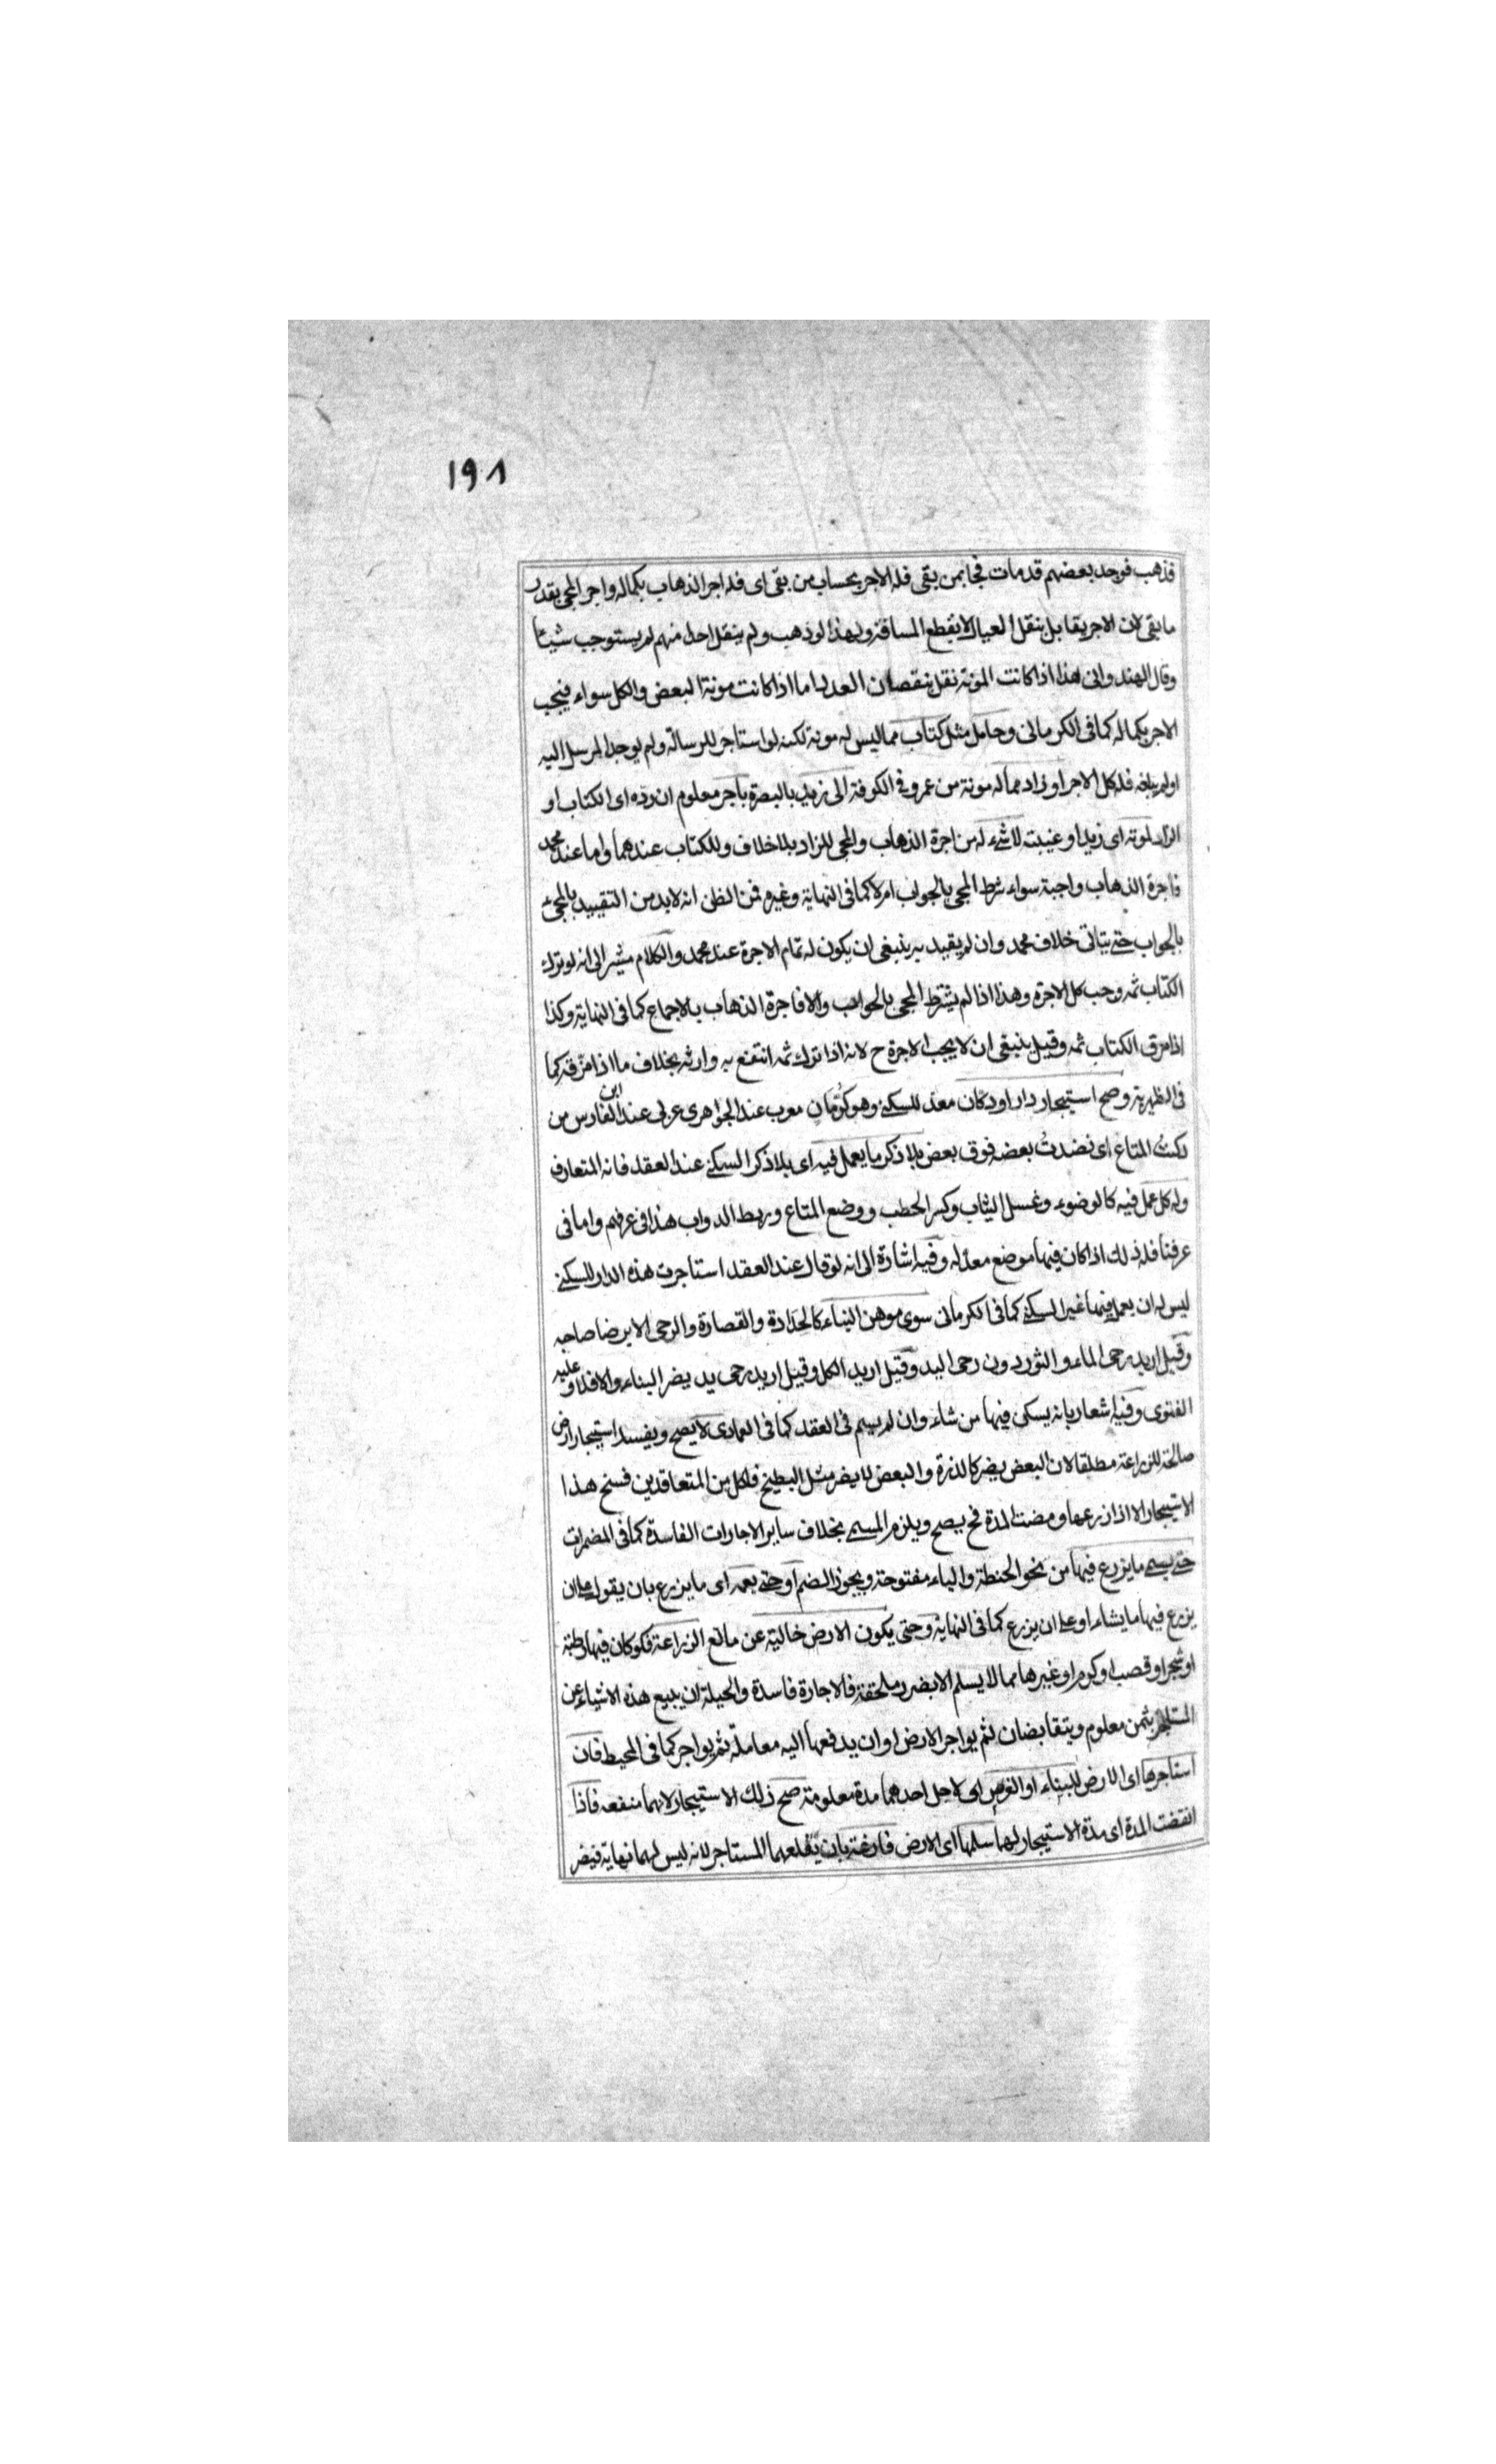 ١٩٨
فذهب فوجد بعضهم قد مات فجا بمن بقى فله الاجر بحساب من بقى اى فله اجر الذهاب بكماله واجر المجى بقدر
ما بقى لان الاجر يقابل بنقل العيال لا بقطع المسافة ولهذا لو ذهب ولم ينقل احدا منهم لم يستوجب شيئا
وقال الهندوانى هذا اذا كانت المونة تقل بنقصان العدد اما اذا كانت مونة البعض والكل سواء فيجب
الاجر بكماله كما فى الكرمانى وحامل مثل كتاب مما ليس له مونة لكنه لو استاجر للرسالة ولم يوجد المرسل اليه
او لم يبلغه فله كل الاجر او زاد مما له مونة من عمرو فى الكوفة الى زيد بالبصرة باجر معلوم ان رده اى الكتاب او
الزاد لموته اى زيد او غيبته لا شىء له من اجرة الذهاب والمجى للزاد بلا خلاف وللكتاب عندهما واما عند محمد
فاجرة الذهاب واجبة سواء شرط المجى بالجواب ام لا كما فى النهاية وغيره فمن الظن انه لا بد من التقييد بالمجئ
بالجواب حتى يتاتى خلاف محمد وان لم يقيد به ينبغى ان يكون له تمام الاجرة عند محمد والكلام مشير الى انه لو ترك
الكتاب ثمه وجب كل الاجرة وهذا اذا لم يشترط المجى بالجواب والا فاجرة الذهاب بالاجماع كما فى النهاية وكذا
اذا مزق الكتاب ثمه وقيل ينبغى ان لا يجب الاجرة ح لانه اذا ترك ثمه انتفع به وارثه بخلاف ما اذا مزقه كما
فى الظهيرية وصح استيجار دار او دكان معد للسكنى وهو كرُمّان معرب عند الجواهرى عربى عند ابن الفارس من
دكنتُ المتاع اى نضدتُ بعضه فوق بعض بلا ذكر ما يعمل فيه اى بلا ذكر السكنى عند العقد فانه المتعارف
وله كل عمل فيه كالوضوء وغسل الثياب وكسر الحطب ووضع المتاع وربط الدواب هذا فى عرفهم واما فى
عرفنا فله ذلك اذا كان فيها موضع معدّ له وفيه اشارة الى انه لو قال عند العقد استاجرت هذه الدار للسكنى
ليس له ان يعمل فيها غير السكنى كما فى الكرمانى سوى موهن البناء كالحدادة والقصارة والرحى الا برضا صاحبه
وقيل اريد رحى الماء والثور دون رحى اليد وقيل اريد الكل وقيل اريد رحى يد يضر البناء والا فلا و عليه
الفتوى وفيه اشعار بانه يسكن فيها من شاء وان لم يسم فى العقد كما فى العمادى لا يصح ويفسد استيجار ارض
صالحة للزراعة مطلقا لان البعض يضر كالذرة والبعض لا يضر مثل البطيخ فلكل من المتعاقدين فسخ هذا
الاستيجار الا اذا زرعها ومضت المدة فح يصح ويلزم المسمى بخلاف ساير الاجارات الفاسدة كما فى المضمرات
حتى يسمى ما يزرع فيها من نحو الحنطة والياء مفتوحة ويجوز الضم او حتى يعمه اى ما يزرع بان يقول على ان
يزرع فيها ما يشاء او على ان يزرع كما فى النهاية وحتى يكون الارض خالية عن مانع الزراعة فلو كان فيها رطبة
او شجر او قصب او كرم او غيرها مما لا يسلم الا بضرر ملحقة فالاجارة فاسدة والحيلة ان يبيع هذه الاشياء من
المستاجر بثمن معلوم ويتقابضان ثم يواجر الارض او ان يدفعها اليه معاملة ثم يواجر كما فى المحيط فان
استاجرها اى الارض للبناء او الغرس اى لاجل احدهما مدة معلومة صح ذلك الاستيجار لانهما منفعه فاذا
انقضت المدة اى مدة الاستيجار لهما سلمها اى الارض فارغة بان يقلعهما المستاجر لانه ليس لهما نهاية فيضر